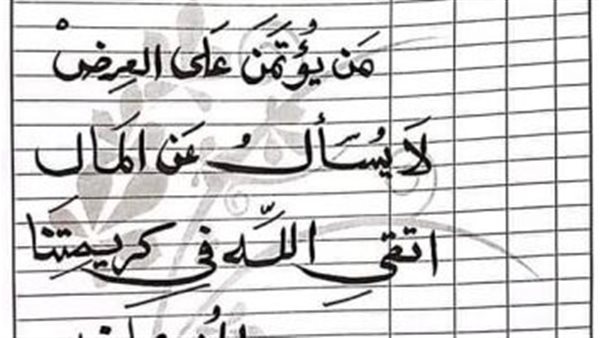 مَن يُؤتَمَنَ عَلى العِرضْ
لَا يُسَأل عَن المَال
اتقيِ اللَّه فيِ كريمتِنَا